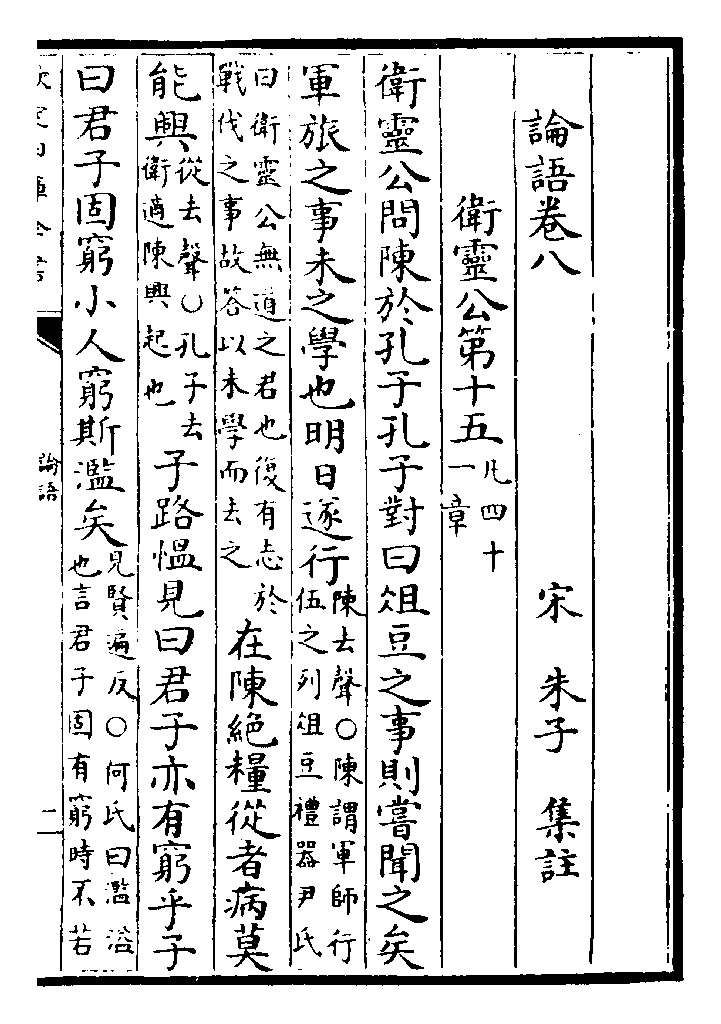 論語卷八
宋 朱子 集註
衛靈公第十五凡四十
一章
衛靈公問陳於孔子孔子對曰俎豆之事則嘗聞之矣
軍旅之事未之學也明日遂行陳去聲○陳謂軍師行
伍之列俎豆禮器尹氏
曰衛靈公無道之君也復有志於
戰伐之事故答以未學而去之
在陳絕糧從者病莫
能興從去聲○孔子去
衛適陳興起也
子路慍見曰君子亦有窮乎子
曰君子固窮小人窮斯濫矣見賢遍反○何氏曰濫溢
也言君子固有窮時不若
論語
二